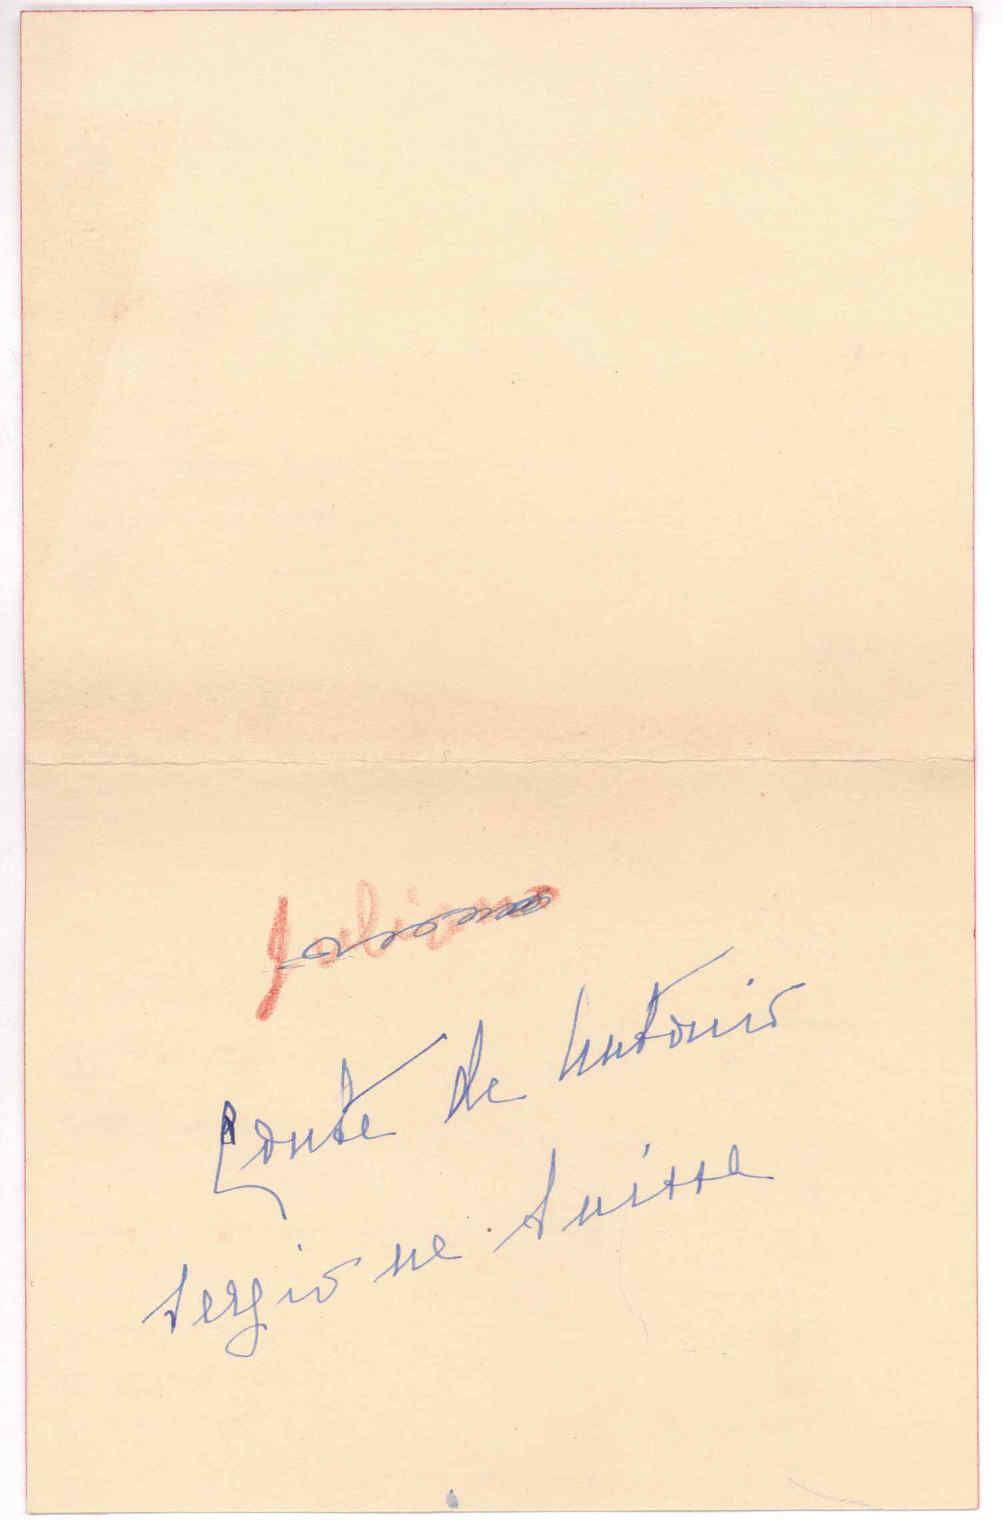 Juliano
Conte de Antonio
Sergio ne Suisse